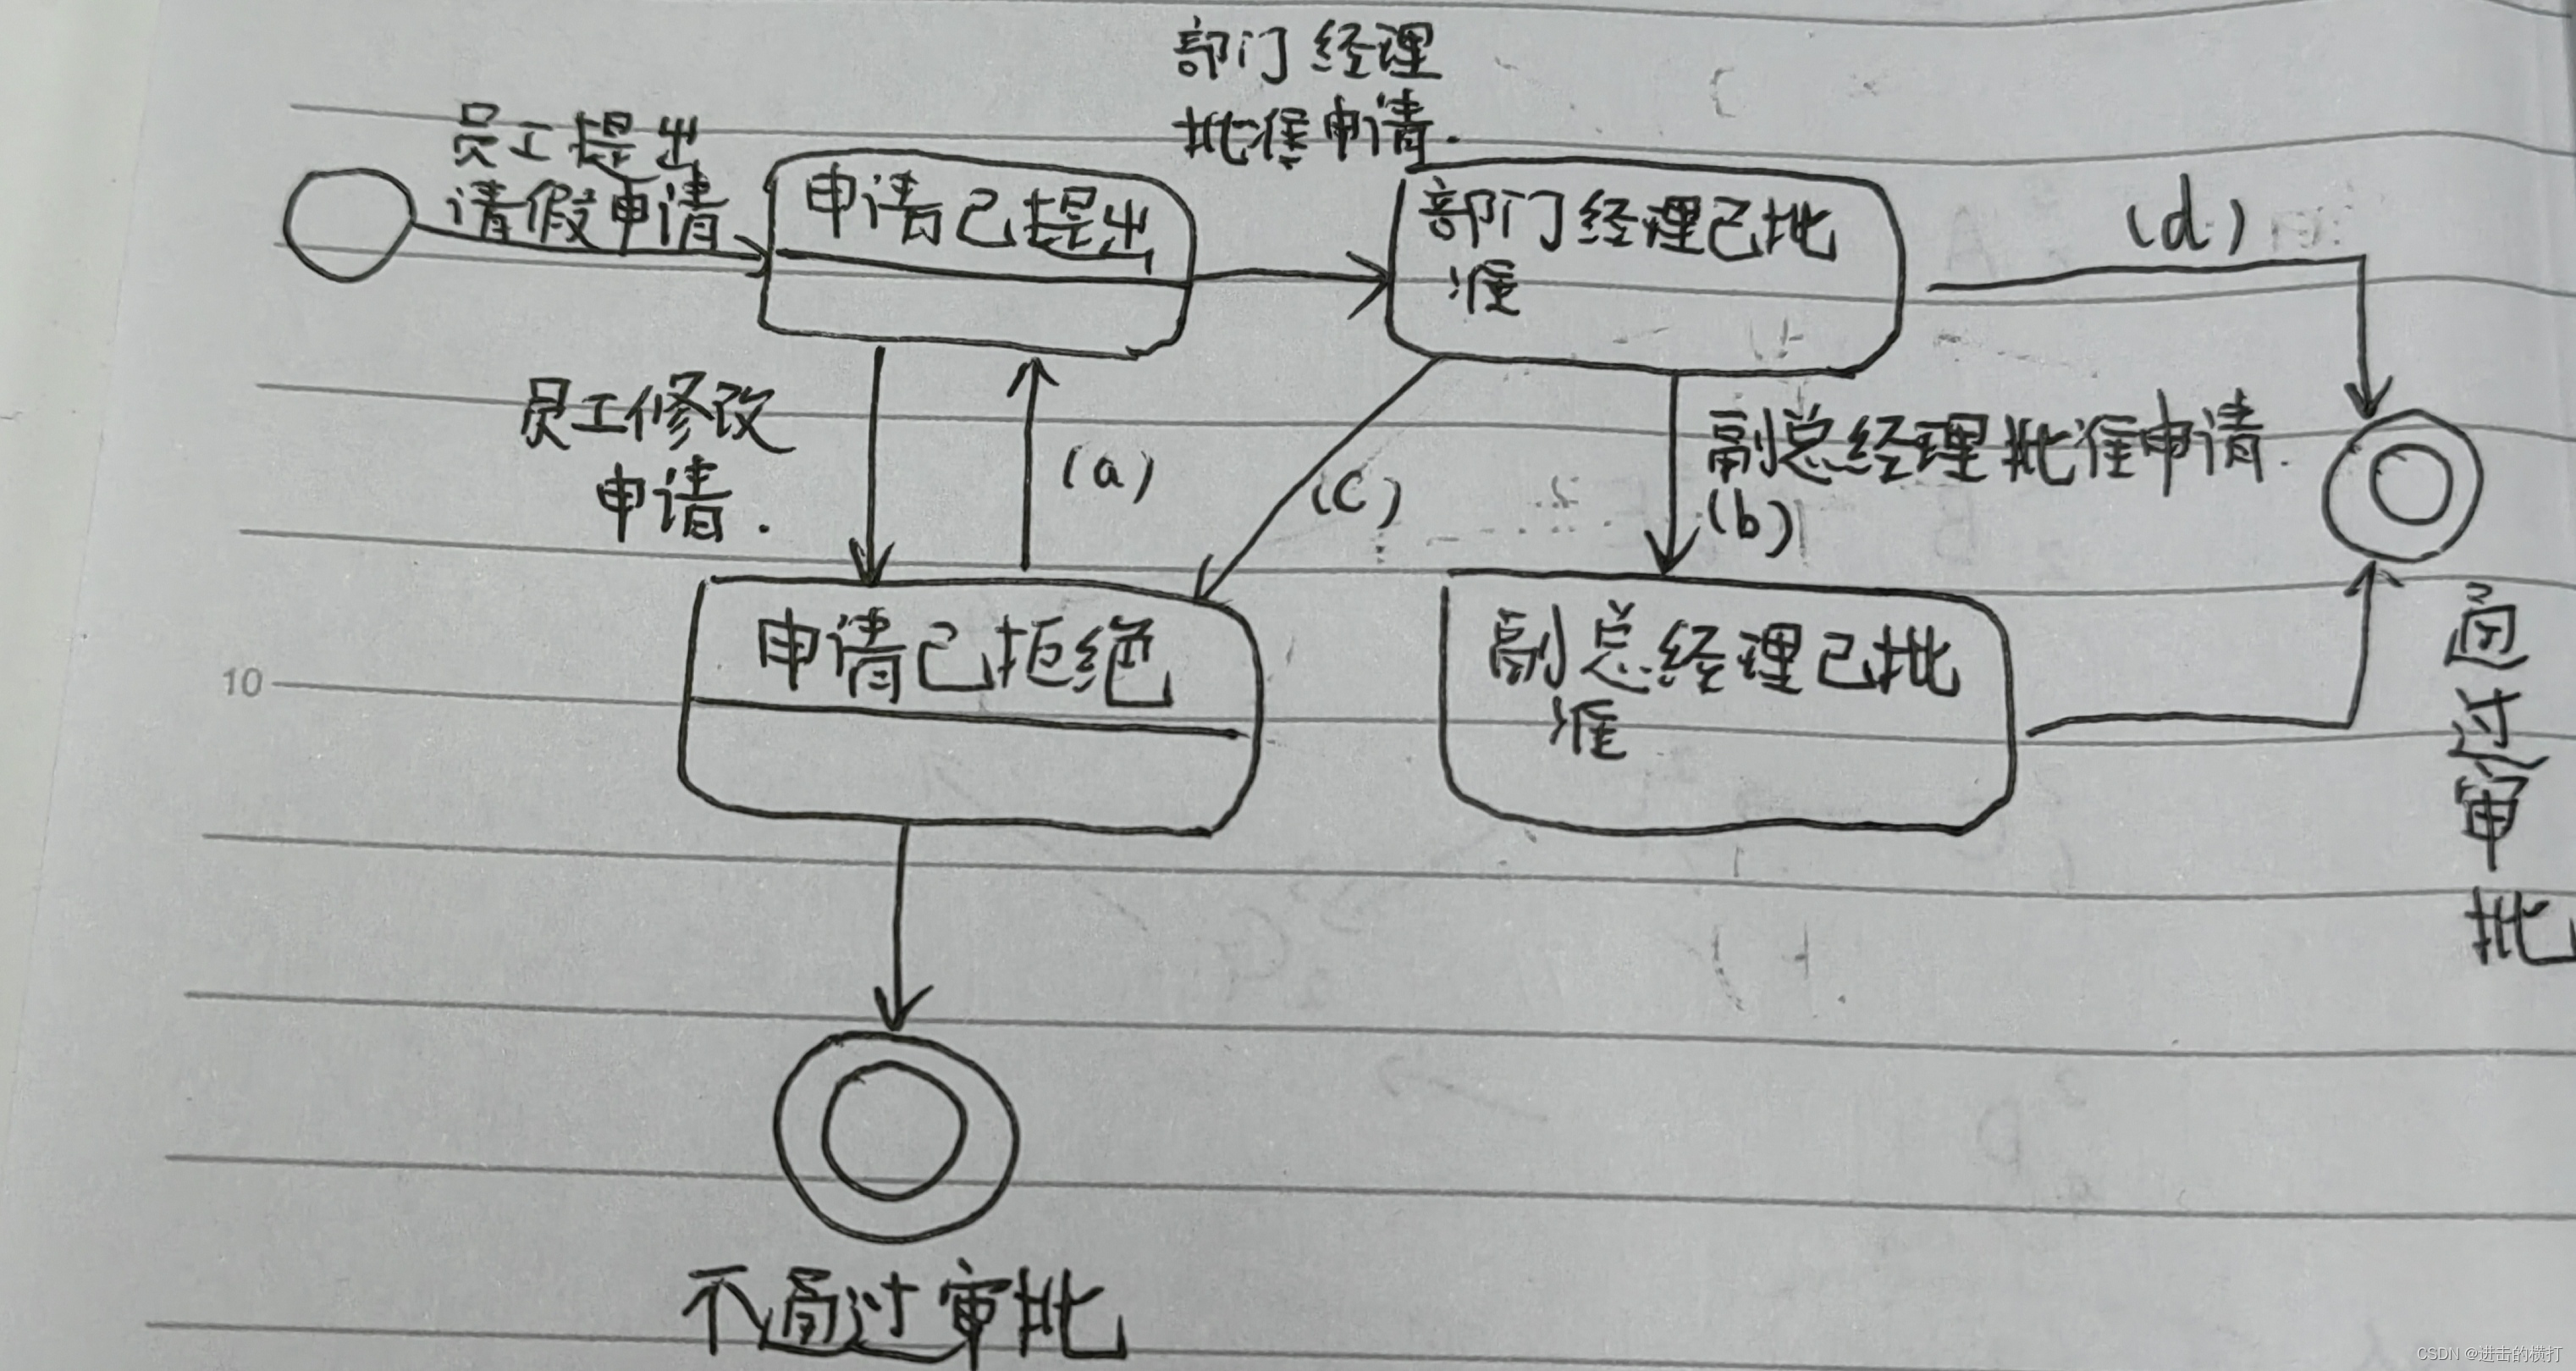 部门经理
批准申请.
员工提出
请假申请
申请已提出
部门经理已批
准
(d)
员工修改
申请.
(a)
(c)
副总经理批准申请.
(b)
申请已拒绝
副总经理已批
准
通过审批
10
不通过审批
CSDN @进击的横打